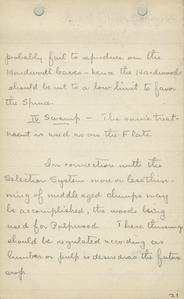 probably fail to reproduce on the
Hardwood bases - hence the Hardwoods
should be cut to a low limit to favor
the Spruce.
IV Swamp - The same treat-
ment is used as on the Flats.
In connection with the
Selection System more or less thinn-
ing of middle aged clumps may
be accomplished, the woods being
used for Pulpwood. These thinnings
should be regulated according as
lumber or pulp is desired in the future
crop.
21